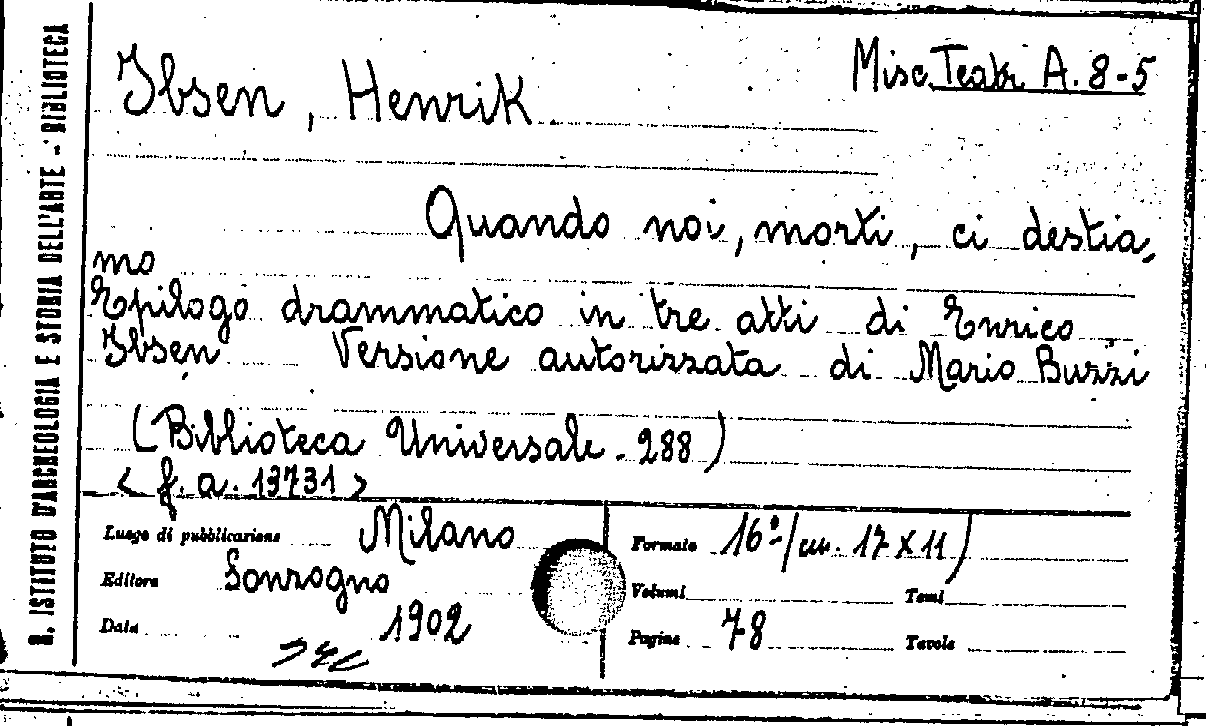 R. ISTITUTO D'ARCHEOLOGIA E STORIA DELL'ARTE - BIBLIOTECA
Misc. Teatr. A. 8-5
Ibsen, Henrik
Quando noi, morti, ci destia,
mo
Epilogo drammatico in tre atti di Enrico
Ibsen Versione autorizzata di Mario Buzzi
(Biblioteca Universale - 288)
< f. a. 13731 >
Luogo di pubblicazione Milano
Editore Sonzogno
Data 1902
Formato 16º (cm. 17 X 11)
Volumi Tomi
Pagine 78 Tavole